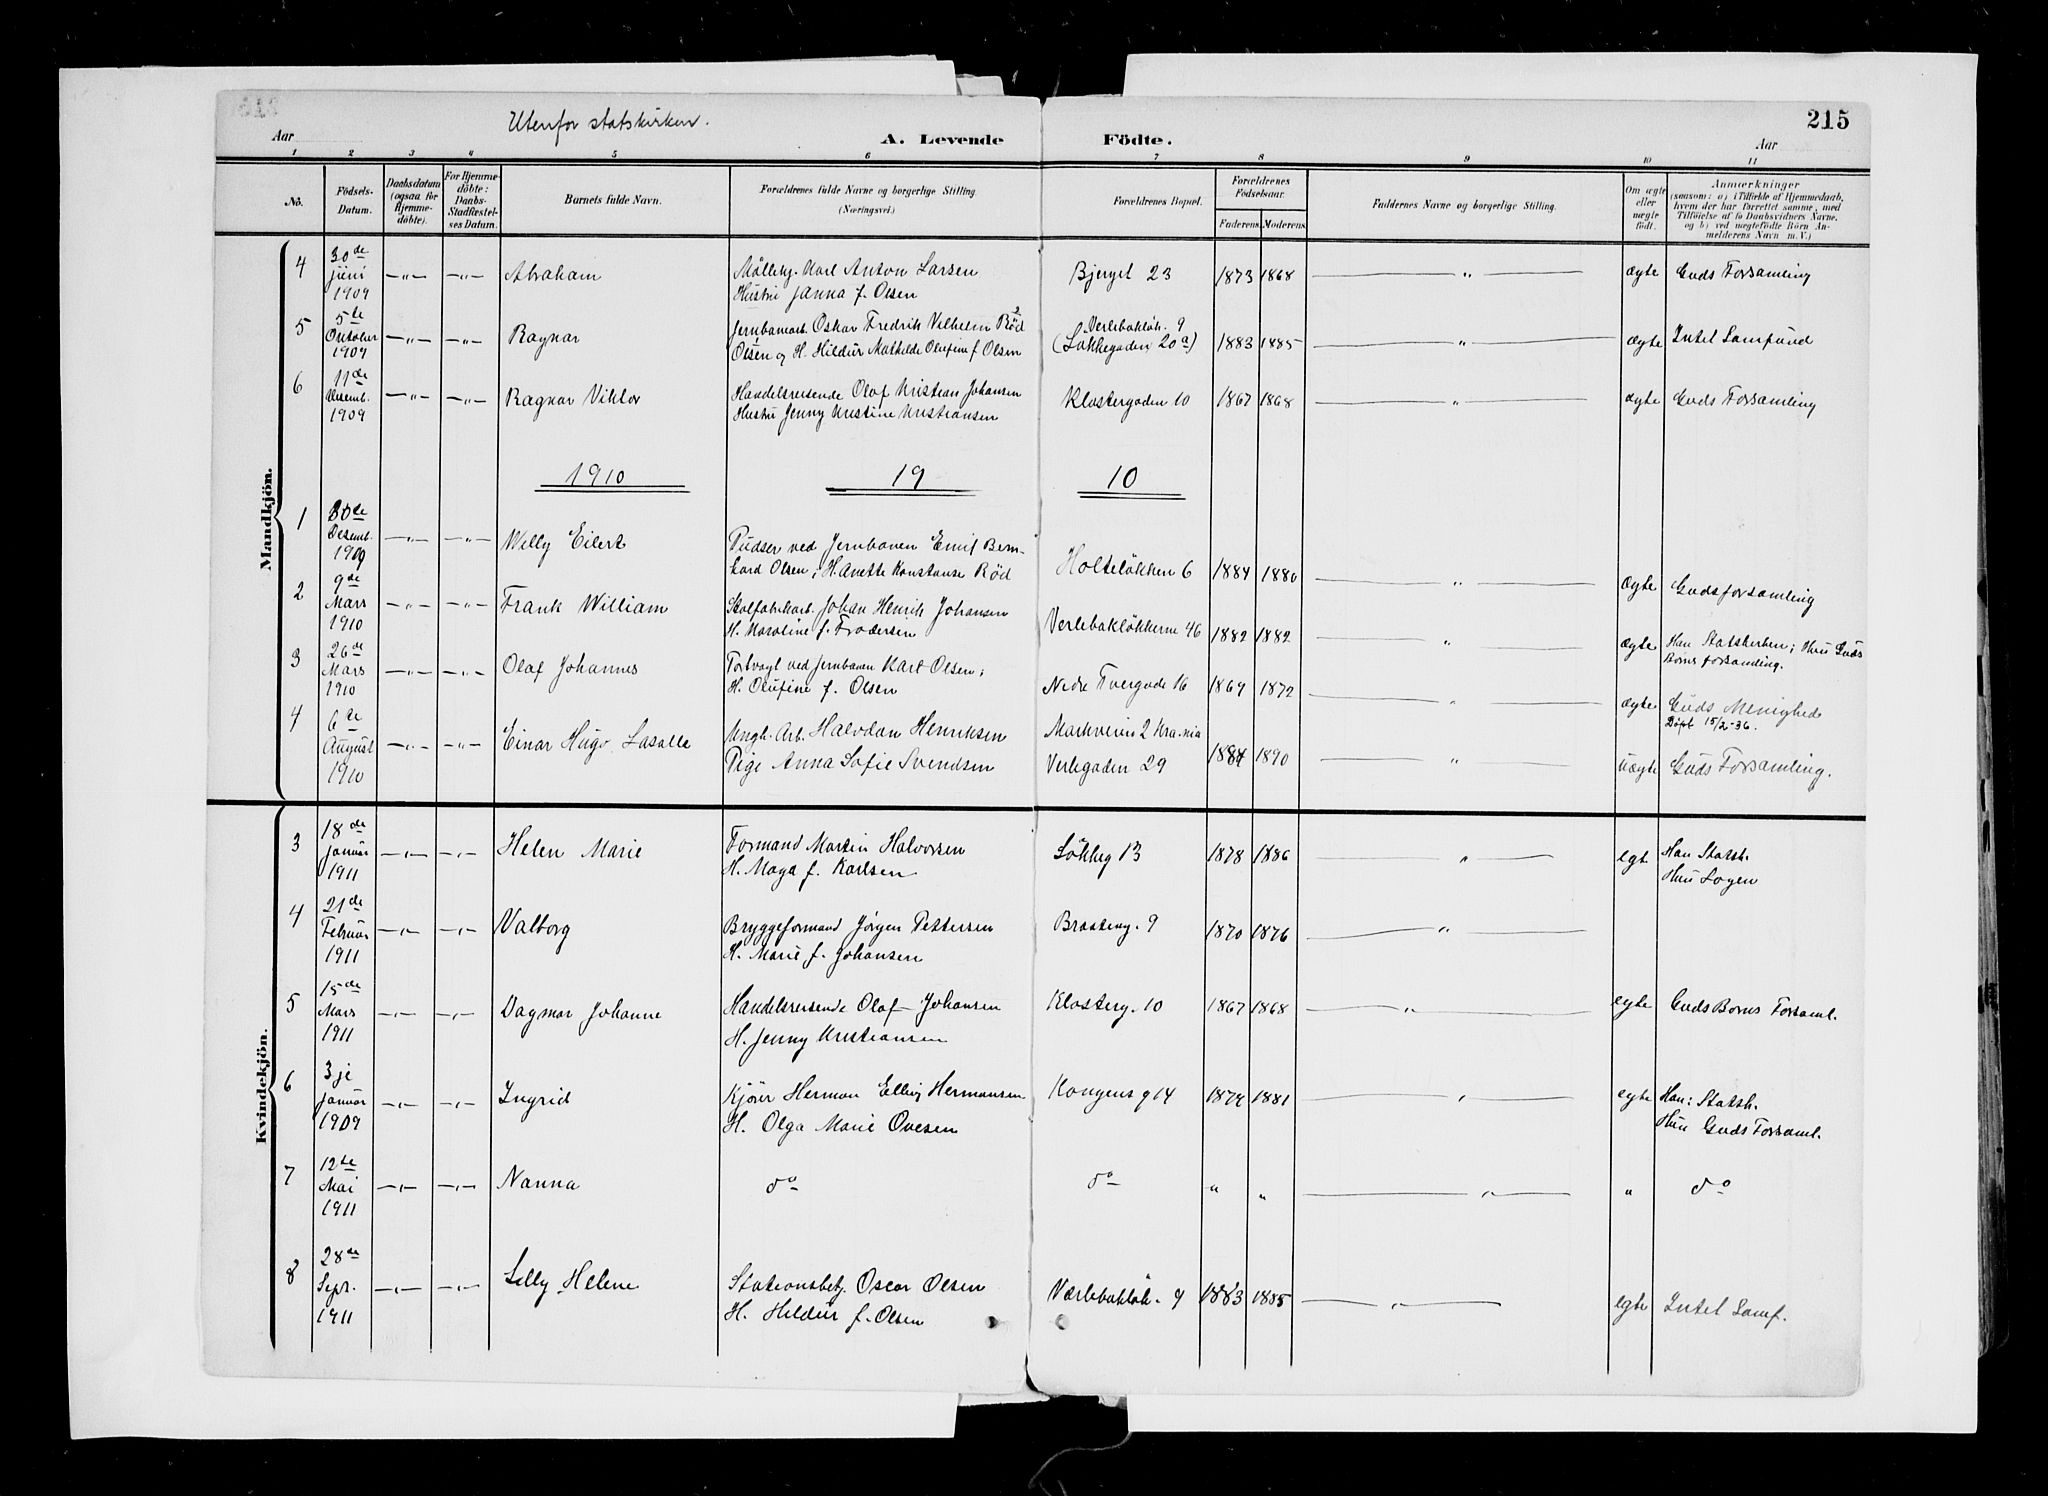 215
Utenfor statskirken.
Aar
A. Levende Födte.
Aar
1 2 3 4 5 6 7 8 9 10 11
No.
Födsels-
Datum.
Daabsdatum
(ogsaa for
Hjemme-
döbte).
For Hjemme-
döbte:
Daabs-
Stadfæstel-
ses Datum.
Barnets fulde Navn.
Forældrenes fulde Navne og borgerlige Stilling.
(Næringsvei.)
Forældrenes Bopæl.
Forældrenes
Födselsaar.
Faderens. Moderens.
Faddernes Navne og borgerlige Stilling.
Om ægte
eller
uægte
födt.
Anmærkninger
(saasom: a) i Tilfælde af Hjemmedaab,
hvem der har forrettet samme, med
Tilföielse af to Daabsvidners Navne,
og b) ved uægtefödte Börn An-
melderens Navn m. V.)
Mandkjön.
4 30de Juni 1909 —„— —„— Abraham
Karl Anton Larsen
Hustru Janna f. Olsen
Bjerget 23 1873 1868 — „ — ægte Guds Forsamling
5 5te Oktober 1909 —„— —„— Ragnar
Jernbanearb. Oskar Fredrik Vilhelm Röd
Olsen og H. Hildur Mathilde Olufine f Olsen
Verlebaklök. 9
(Løkkegaden 20a) 1883 1885 — „ — ægte Intet Samfund
6 11de Desemb. 1909 —„— —„— Ragnar Viktor
Handelsreisende Olaf Kristian Johansen
Hustru Jenny Kristine Kristiansen
Klostergaden 10 1867 1868 — „ — ægte Guds Forsamling
1910 19 10
1 30te Desemb. 1909 —„— —„— Willy Eilert
Pudser ved Jernbanen Emil Bern-
hard Olsen; H. Anette Konstanse Röd
Holteløkken 6 1884 1880 — „ — ægte Gudsforsamling
2 9de Mars 1910 —„— —„— Frank William
Johan Henrik Johansen
H. Karoline f. Frodersen
Verlebakløkkerne 46 1882 1882 — „ — ægte Han Statskirken; Hun Guds
Borns forsamling.
3 26de Mars 1910 —„— —„— Olaf Johannes
ved Jernbanen Karl Olsen;
H. Olufine f. Olsen
Nedre Tvergade 16 1869 1872 — „ — ægte Guds Menighed
Døpt 15/2-36.
4 6te August 1910 —„— —„— Einar Hugo Lasalle
Ungk. Arb. Halvdan Henriksen
Pige Anna Sofie Svendsen
Markveien 2 Kra.nia
Verlegaden 29 1884 1890 — „ — uægte Guds Forsamling.
Kvindekjön.
3 18de Januar 1911 —„— —„— Helen Marie
Formand Martin Halvorsen
H. Maga f. Karlsen
Løkkeg 13 1878 1886 — „ — egte Han Statsk.
Hun Logen
4 21de Februar 1911 —„— —„— Valborg
Bryggeformand Jörgen Pettersen
H. Marie f. Johansen
Braateng. 9 1870 1876 — „ —
5 15de Mars 1911 —„— —„— Dagmar Johanne
Handelsreisende Olaf Johansen
H. Jenny Kristiansen
Klosterg. 10 1867 1868 — „ — egte Guds Borns Forsaml.
6 3je Januar 1909 —„— —„— Ingrid
Kjörer Herman Elling Hermansen
H. Olga Marie Ovesen
Kongens g 14 1879 1881 — „ — egte Han: Statsk.
Hun Guds Forsaml.
7 12te Mai 1911 —„— —„— Nanna
do do „ „ — „ — „ do
8 28de Sepr. 1911 —„— —„— Lilly Helene
Stationsbetj. Oscar Olsen
H. Hildur f. Olsen
Værlebakløk. 9 1883 1885 — „ — egte Intet Samf.